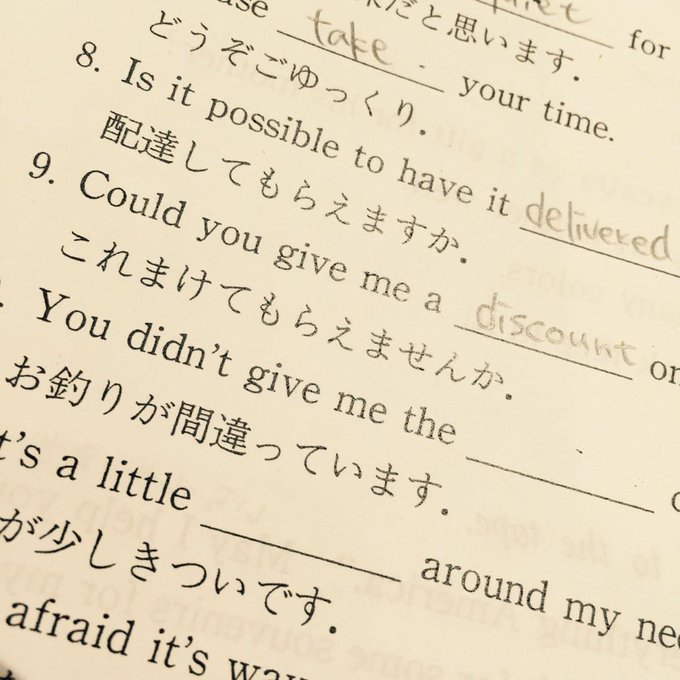 take your time.
どうぞごゆっくり.
8. Is it possible to have it delivered
配達してもらえますか.
9. Could you give me a discount on
これまけてもらえませんか.
You didn't give me the
お釣りが間違っています.
a little around my
が少しきついです.
afraid it's